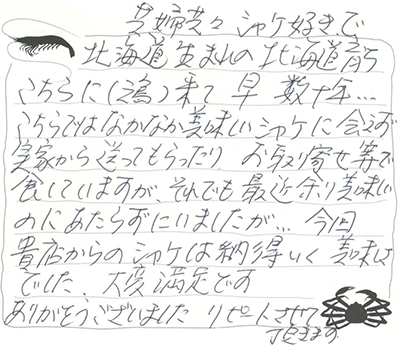 夫婦共々 シャケ好きで
北海道生まれの北海道育ち
こちらに(嫁)来て早数十年…
こちらではなかなか美味しいシャケに会えず
実家から送ってもらったり お取り寄せ等で
食していますが、それでも最近余り美味しい
のにあたらずにいましたが… 今回
貴店からのシャケは納得いく美味さ
でした。大変満足です
ありがとうございました リピートさせて
頂きます